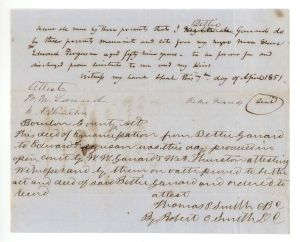 Know all men by these presents that I Bettie Garrard do
by these presents manumit and set free my negro man slave
Edward Ferguson aged fifty nine years - to
discharged from servitude to me and my heirs
Witness my hand & seal this 7th day of April 1851.
Attest
Bettie Garrard Seal
W. W. Garrard
W. Thurston
Bourbon County Sct
The deed of emancipation from Bettie Garrard
to Edward Ferguson was this day produced in
open court by W. W. Garrard & W. Thurston attesting
witnesses and by them on oath proved to be the
act and deed of said Bettie Garrard and ordered to
record
attest
Thomas P. Smith
By Robert C. Smith D.C.